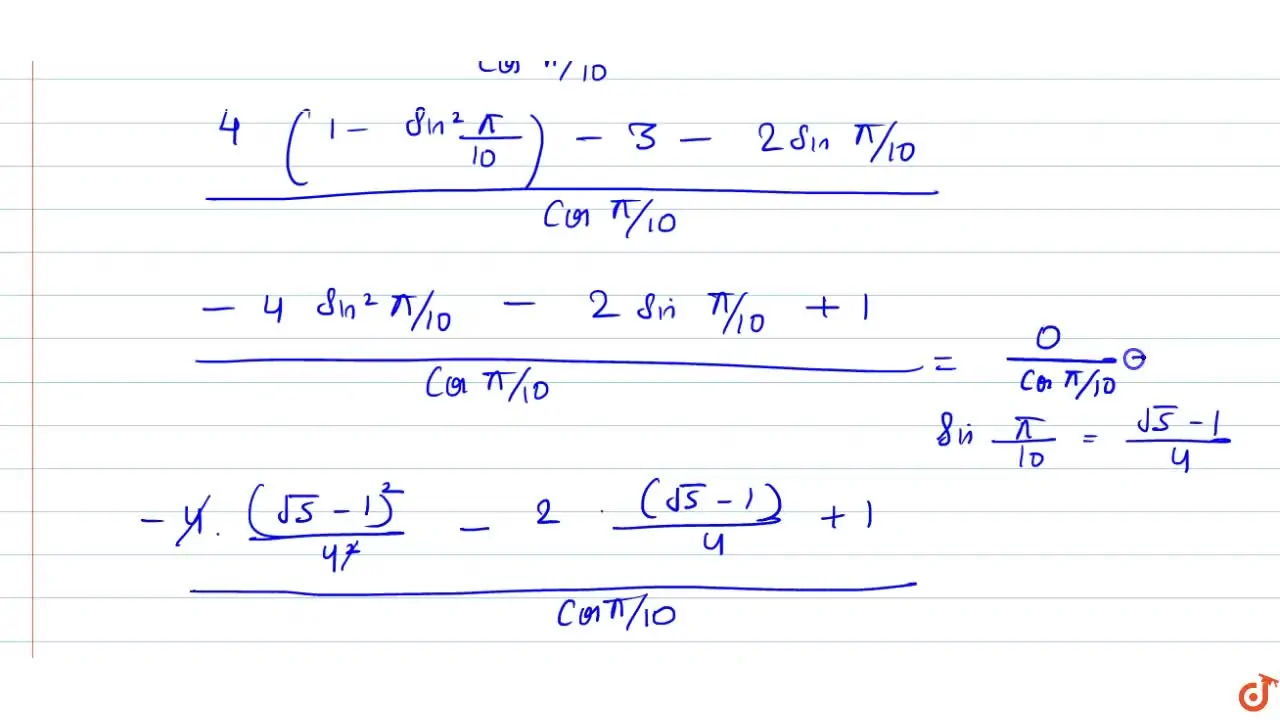 Cos π/10
4 (1 - Sin² π/10) - 3 - 2 Sin π/10
Cos π/10
- 4 Sin² π/10 - 2 Sin π/10 + 1
Cos π/10
= 0/Cos π/10 =
Sin π/10 = (√5 - 1)/4
- 4 . (√5 - 1)²/4² - 2 . (√5 - 1)/4 + 1
Cos π/10